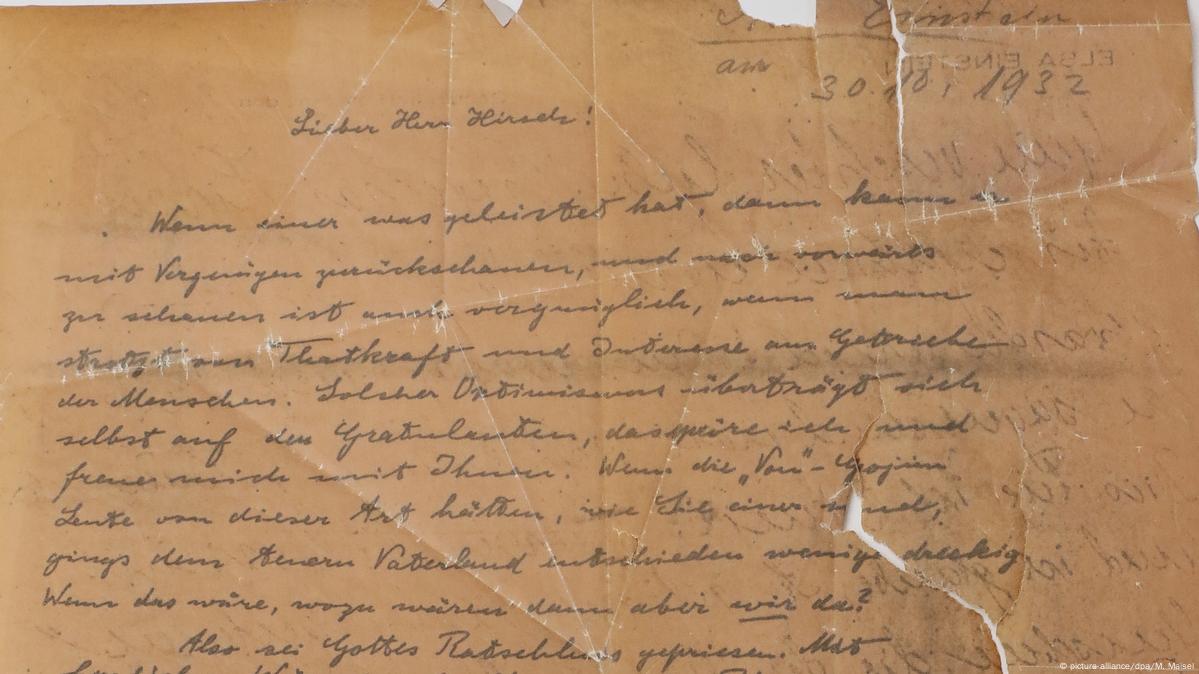 Einstein
ELSA EINSTEIN
am
30.10.1932
Lieber Herr Hirsch!
Wenn einer was geleistet hat, dann kann er
mit Vergnügen zurückschauen, und vorwärts
zu schauen ist auch vergnüglich, wenn man
strotzt von Thatkraft und Interesse am Getriebe
der Menschen. Solcher Optimismus überträgt sich
selbst auf den Gratulanten, das spüre ich und
freue mich mit Ihnen. Wenn die „Von"-Gojim
Leute von dieser Art hätten, wie Sie einer sind,
gings dem teuern Vaterland entschieden weniger dreckig
Wenn das wäre, wozu wären dann aber wir da?
Also sei Gottes Ratschluss gepriesen. Mit
© picture-alliance/dpa/M. Maisel